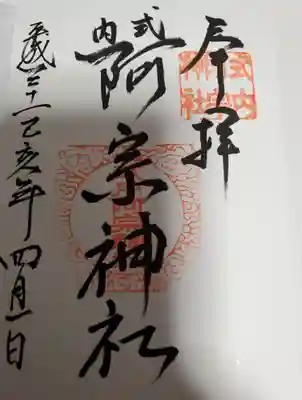 奉拝
式内
阿宗神社
平成三十一己亥年四月一日